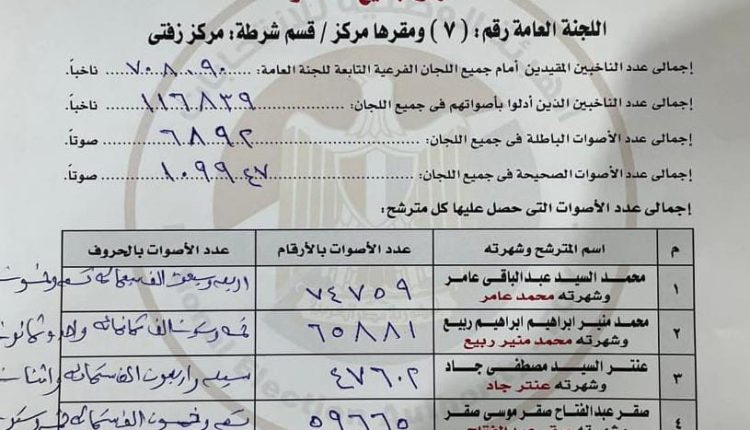 اللجنة العامة رقم: ( ٧ ) ومقرها مركز / قسم شرطة: مركز زفتى
إجمالى عدد الناخبين المقيدين أمام جميع اللجان الفرعية التابعة للجنة العامة: ٧٠٨٠٩٠ ناخباً.
إجمالى عدد الناخبين الذين أدلوا بأصواتهم فى جميع اللجان: ١١٦٨٣٩ ناخباً.
إجمالى عدد الأصوات الباطلة فى جميع اللجان: ٦٨٩٢ صوتاً.
إجمالى عدد الأصوات الصحيحة فى جميع اللجان: ١٠٩٩٤٧ صوتاً.
إجمالى عدد الأصوات التى حصل عليها كل مترشح:
م اسم المترشح وشهرته عدد الأصوات بالأرقام عدد الأصوات بالحروف
١ محمد السيد عبدالباقى عامر ٧٤٧٥٩ اربعة وسبعون الف سبعمائة تسعة وخمسون
وشهرته محمد عامر
٢ محمد منير ابراهيم ابراهيم ربيع ٦٥٨٨١ خمسة وستون الف ثمانمائة واحد وثمانون
وشهرته محمد منير ربيع
٣ عنتر السيد مصطفى جاد ٤٧٦٠٢ سبعة واربعون الف ستمائة واثنان
وشهرته عنتر جاد
٤ صقر عبدالفتاح صقر موسى صقر ٥٩٦٦٥ تسعة وخمسون الف ستمائة
وشهرته صقر عبدالفتاح